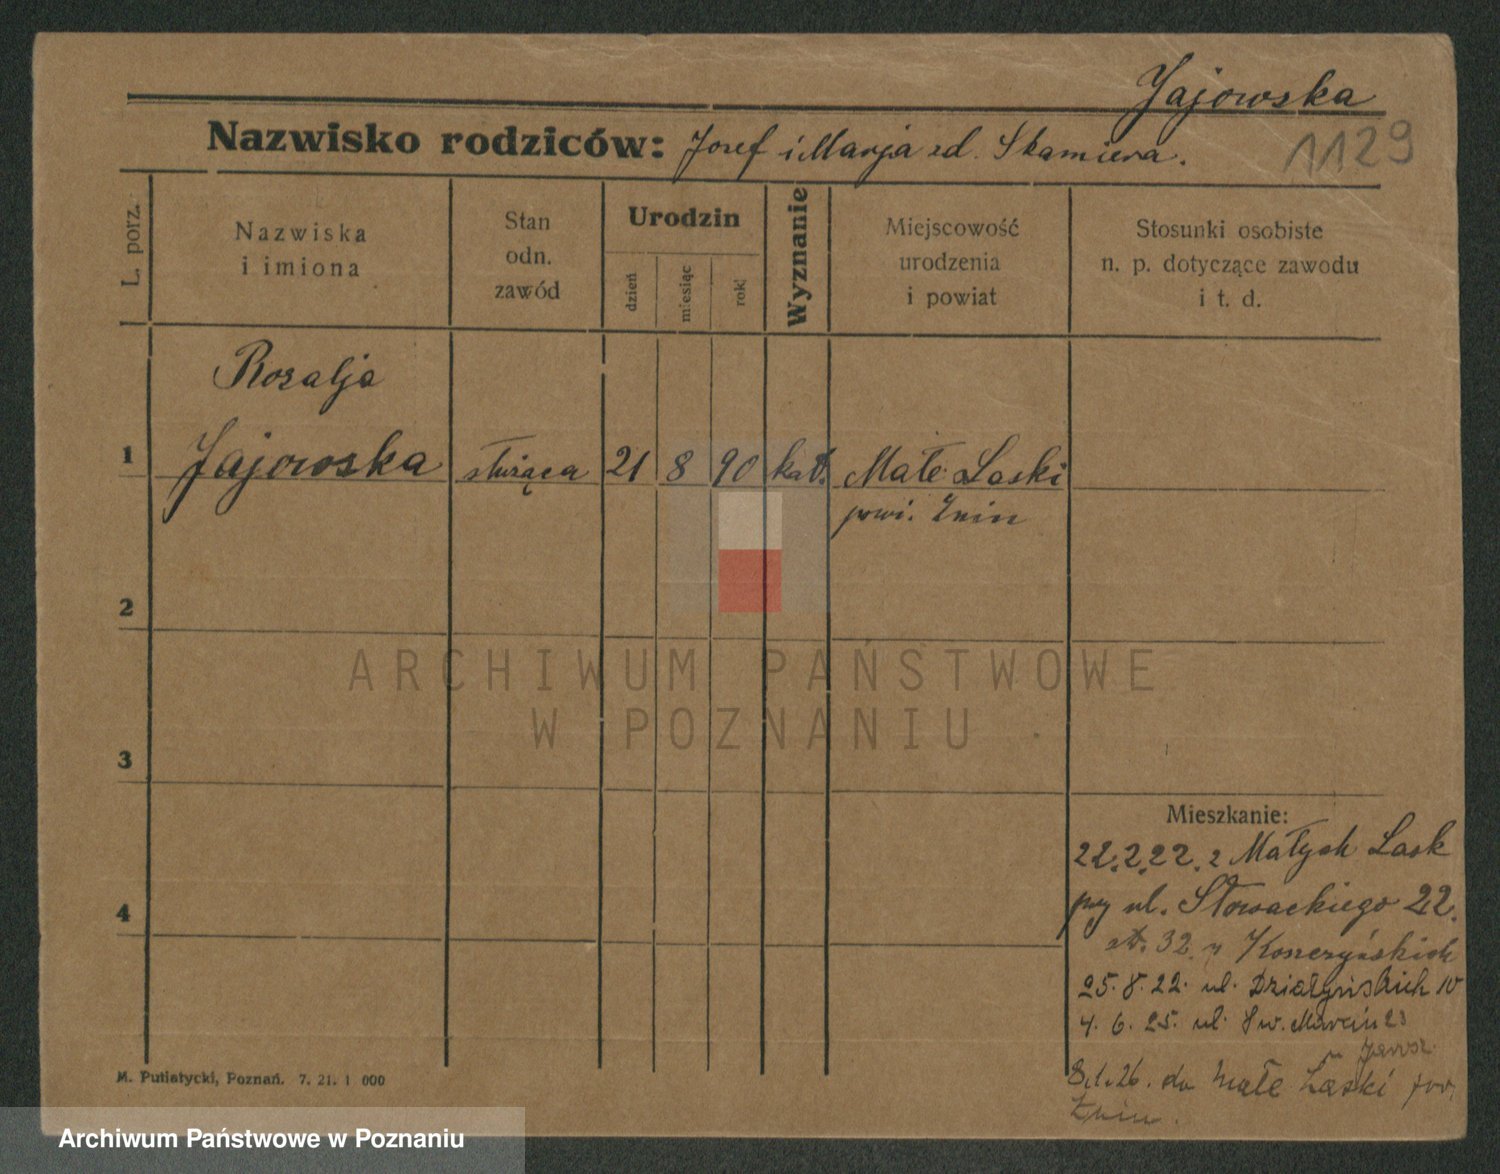 Jajowska
1129
Nazwisko rodziców: Josef i Marja zd. Skamiera.
L. porz.
Nazwiska
i imiona
Stan
odn.
zawód
Urodzin
dzień
miesiąc
rok
Wyznanie
Miejscowość
urodzenia
i powiat
Stosunki osobiste
n. p. dotyczące zawodu
i t. d.
Rozalja
1 Jajowska służąca 21 8 90 kat. Małe Laski
powi. Żnin
2
3
4
ARCHIWUM PAŃSTWOWE
W POZNANIU
Mieszkanie:
22.2.22. z Małych Lask
przy ul. Słowackiego 22.
32 Koszczyńskich
25.8.22. ul. Działyńskich 10
4.6.25. ul. Św. Marcin 23
8.1.26. do Małe Laski pow.
Żnin.
M. Putiatycki, Poznań. 7. 21. 1 000
Archiwum Państwowe w Poznaniu